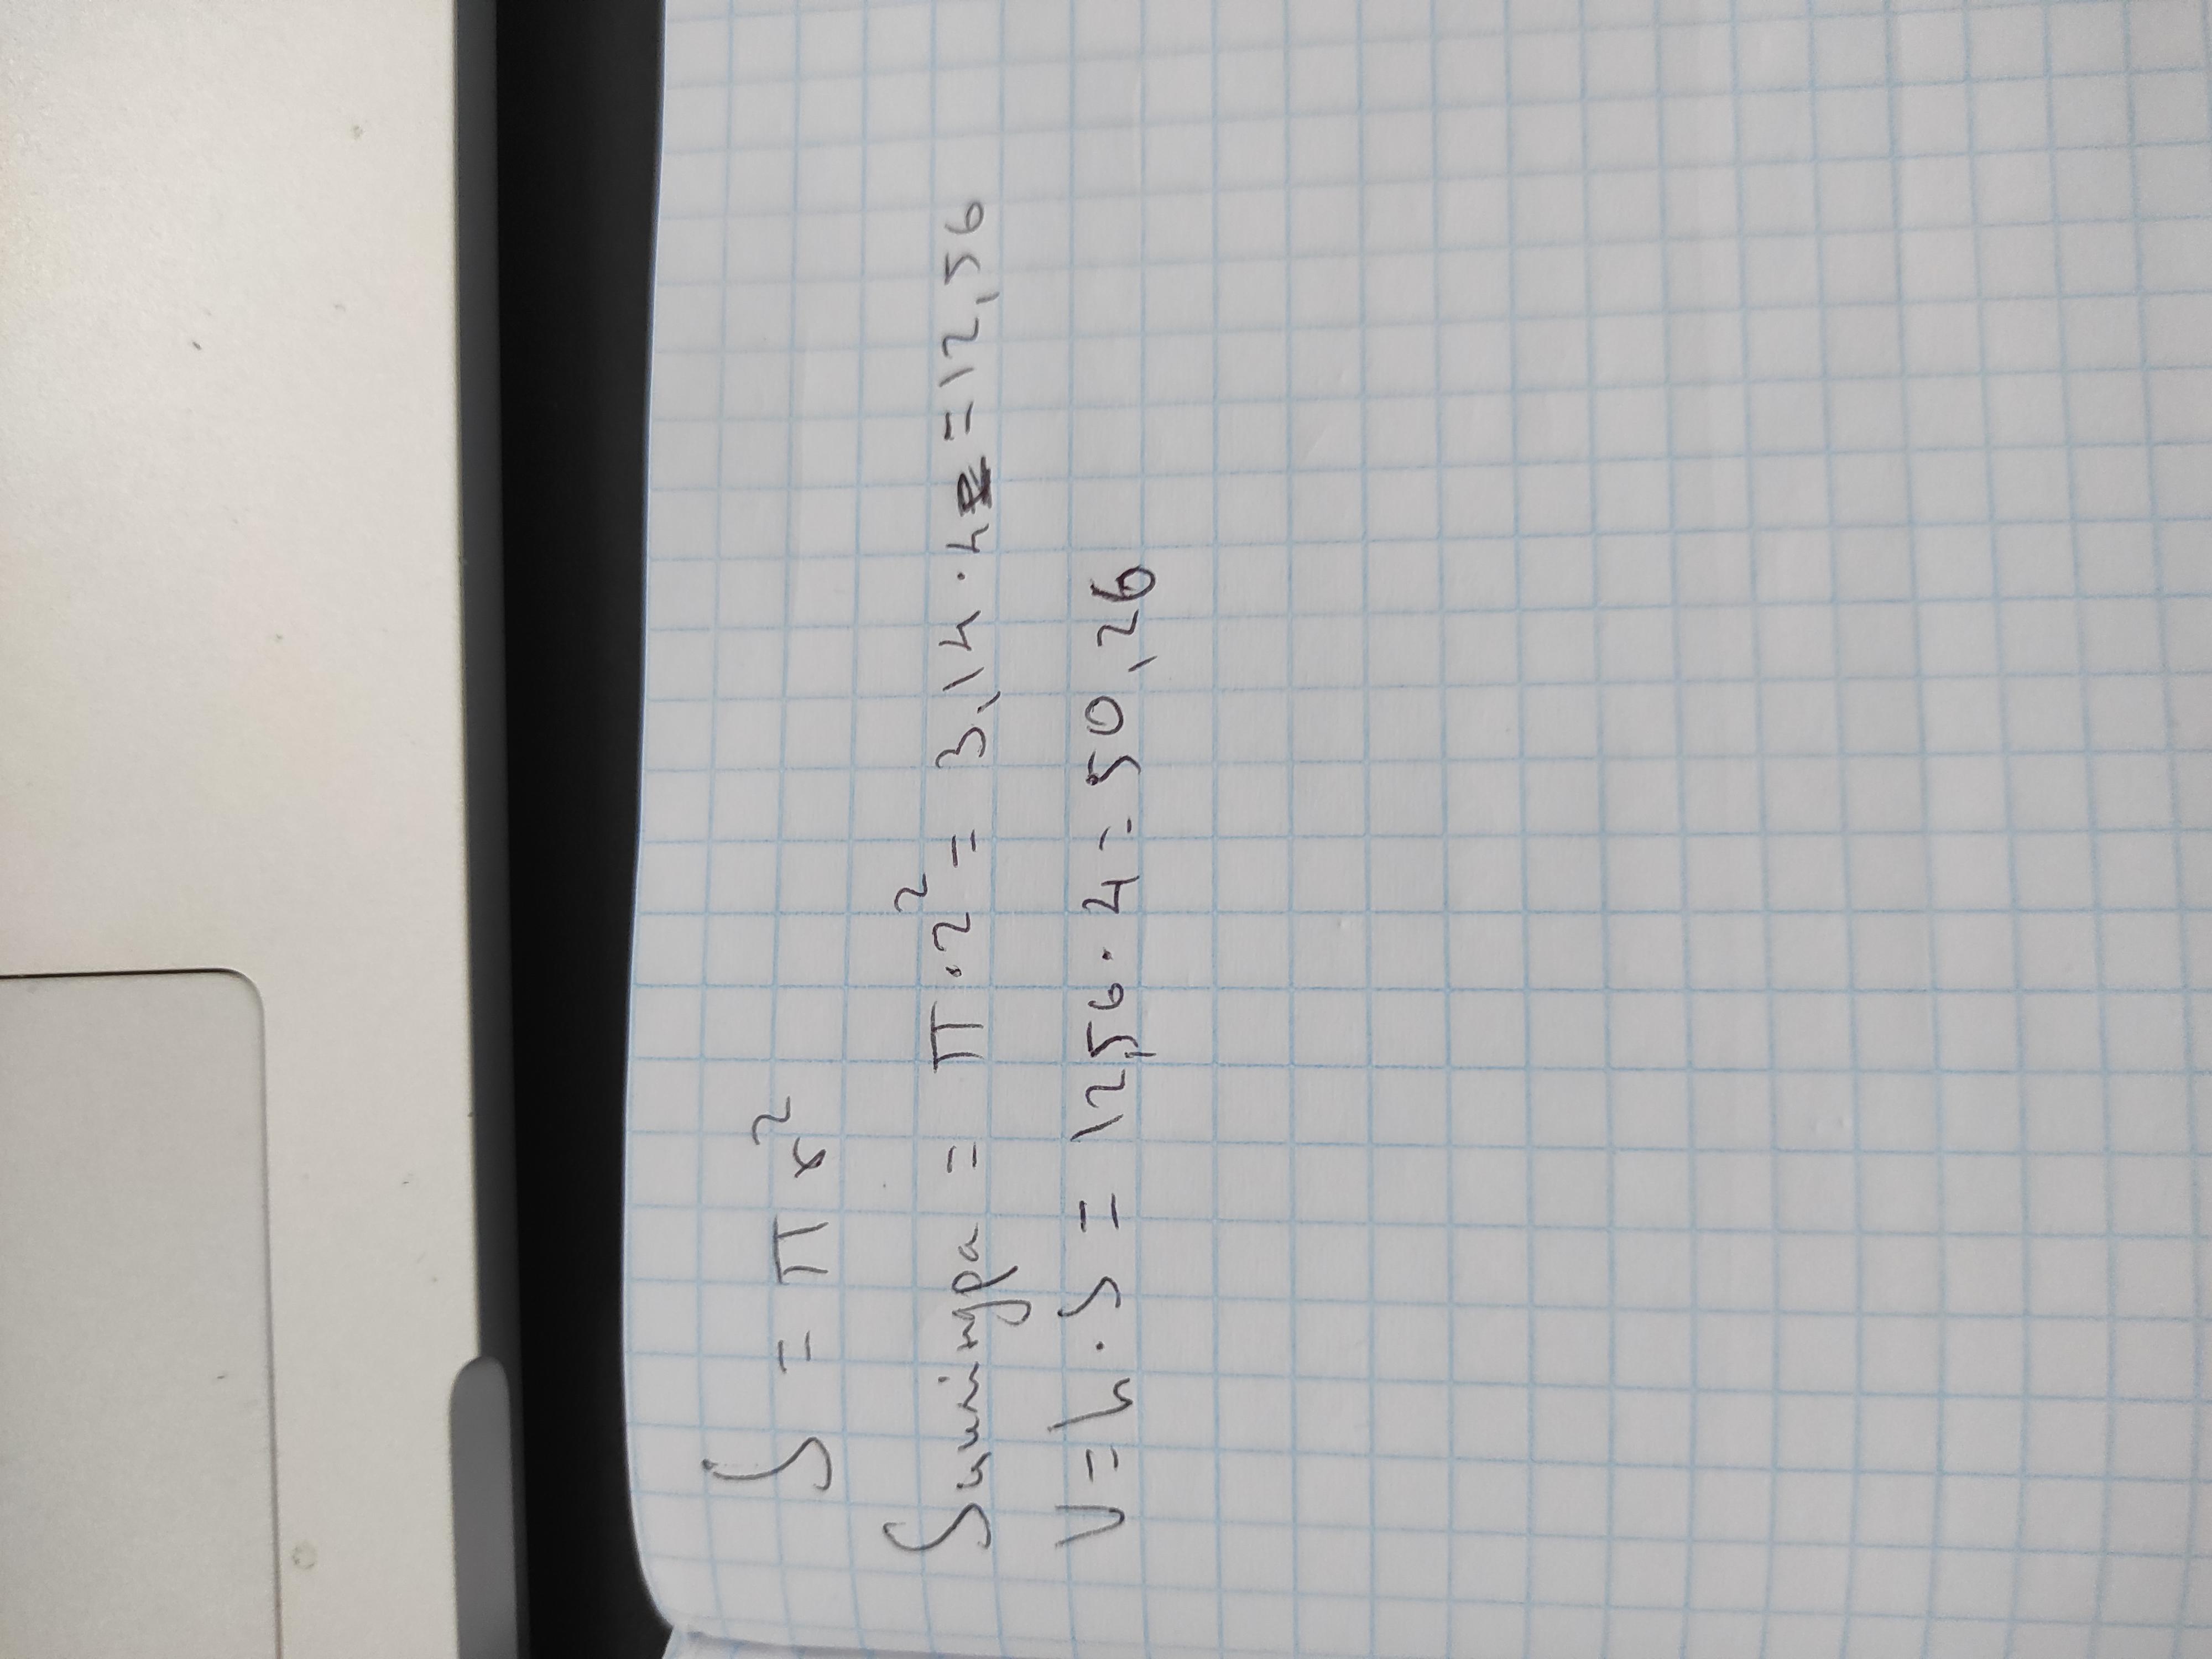 S = π r²
Sциліндра = π · 2² = 3,14 · 4 = 12,56
V = h · S = 12,56 · 4 = 50,26